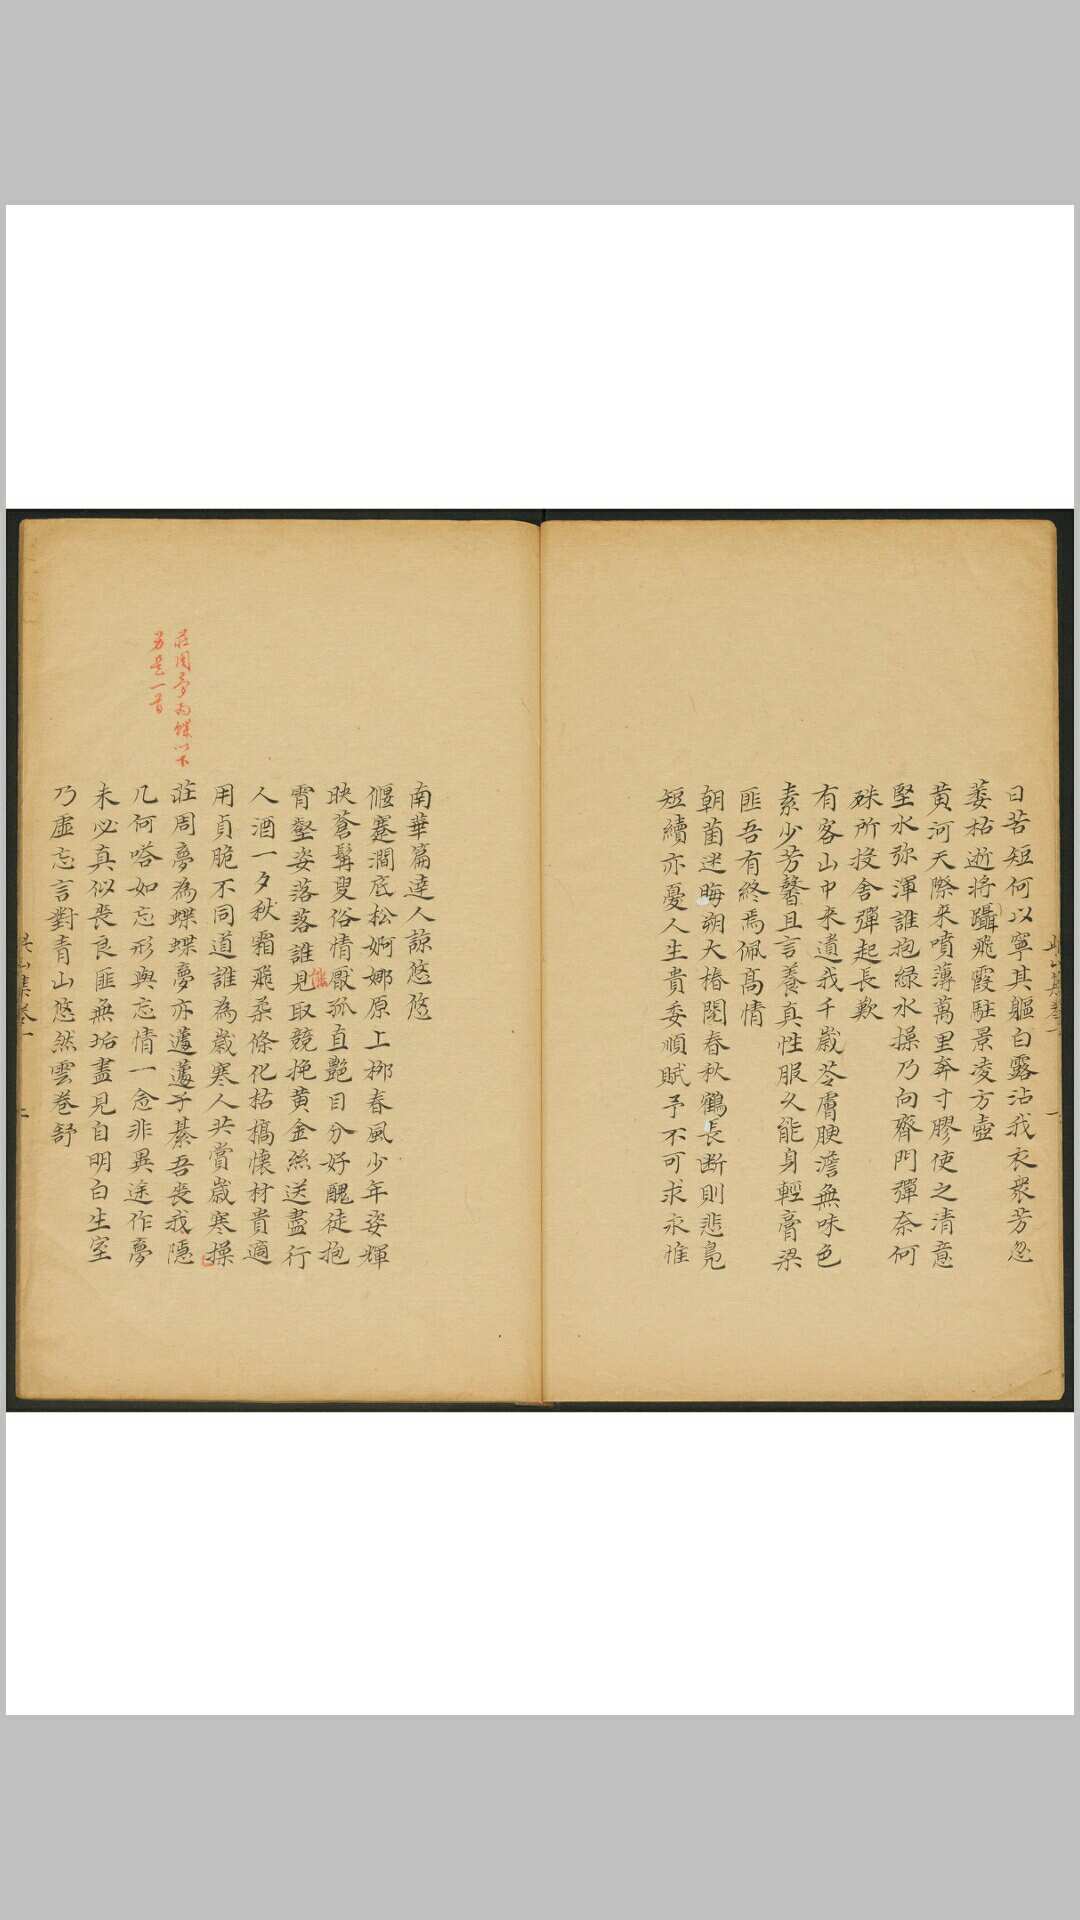 日苦短何以寧其軀白露沾我衣衆芳忽
萎枯逝将躡飛霞駐景凌方壺
黄河天際来噴薄萬里奔寸膠使之清意
堅水弥渾誰抱緑水操乃向齊門彈奈何
殊所投舍彈起長歎
有客山中来遺我千歲苓膚腴澹無味色
素少芳馨且言養真性服久能身輕膏梁
匪吾有終焉佩高情
朝菌迷晦朔大椿閱春秋鶴長断則悲鳧
短續亦憂人生貴委順賦予不可求永惟
南華篇達人諒悠悠
偃蹇澗底松婀娜原上栁春風少年姿輝
映蒼髯叟俗情厭孤直艷目分好醜徒抱
霄壑姿落落誰見取競挽黄金絲送盡行
人酒一夕秋霜飛柔條化枯槁懐材貴適
用貞脆不同道誰為歲寒人共賞歲寒操
莊周夢為蝶蝶夢亦蘧蘧子綦吾喪我隱
几何嗒如忘形與忘情一念非異途作夢
未必真似喪良匪無垢盡見自明白生室
乃虛忘言對青山悠然雲卷舒
莊周夢為蝶以下
另是一首
集卷一